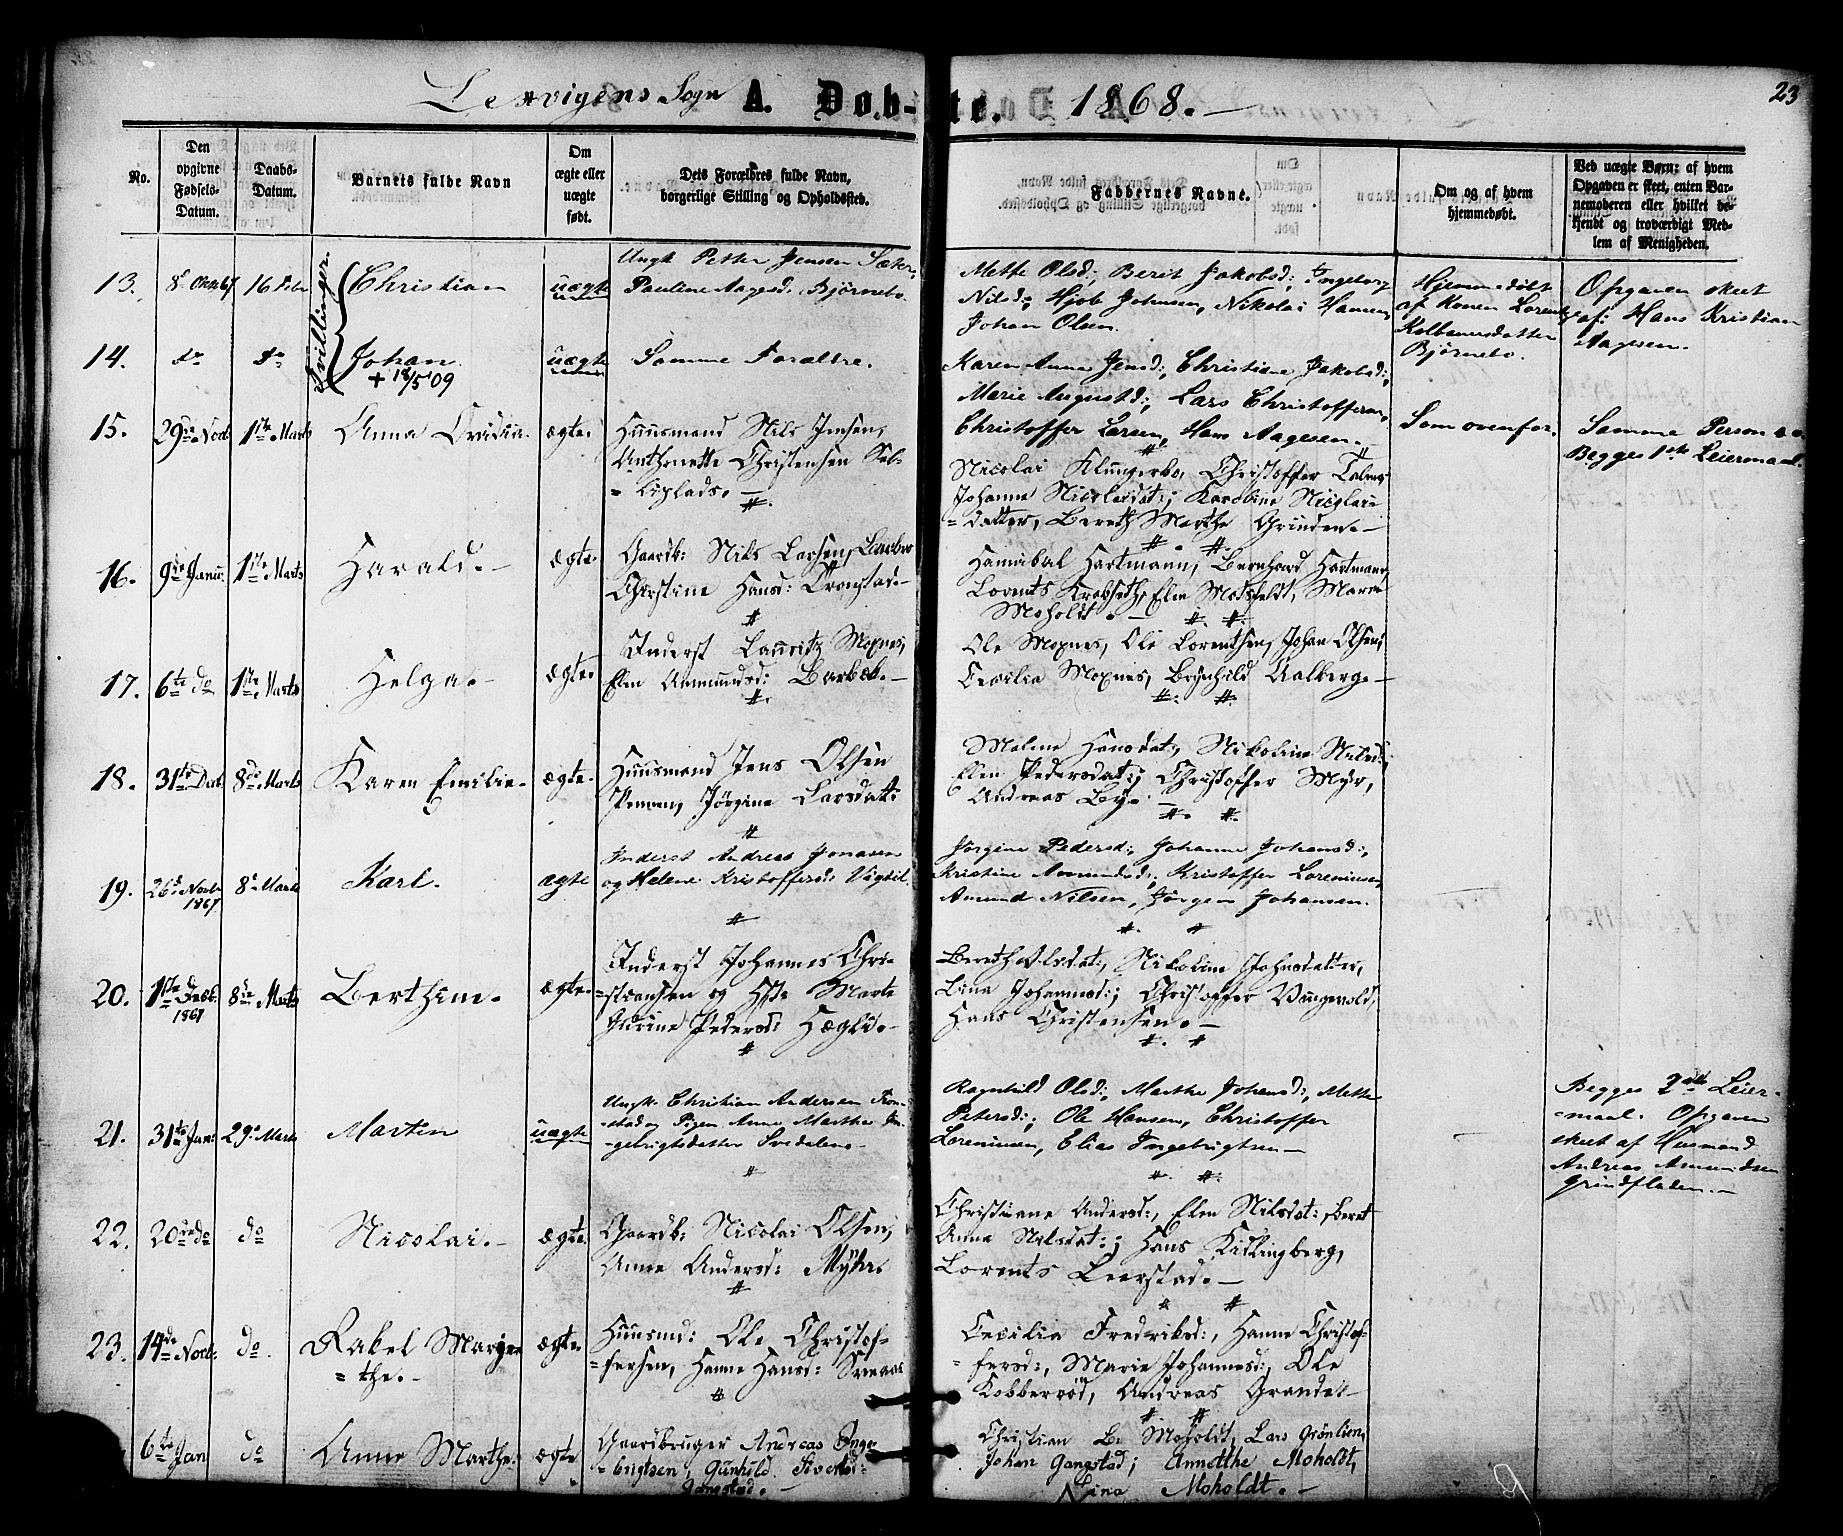 Lexvigens Sogn A. Døb-te. 1868.
23
No.
Den opgivne Fødsels-Datum.
Daabs-Datum.
Barnets fulde Navn
Om ægte eller uægte født.
Dets Forældres fulde Navn, borgerlige Stilling og Opholdssted.
Faddernes Navne.
Om og af hvem hjemmedøbt.
Ved uægte Børn: af hvem Opgaven er skeet, enten Barnemoderen eller hvilket bekjendt og troværdigt Medlem af Menigheden.
Tvillinger.
13. 16 Febr Christian uægte
Ungk Petter Jensen Sæter,
Pauline Aagesd. Bjørnebo
Mette Olsd:, Berit Jakobsd:, Ingeborg
Nilsd:, Hjob Johnsen, Nikolai Hansen,
Johan Olsen.
Hjemmedøbt
af Konen Lorentze
Kolbannsdatter
Bjørnebo.
Opgaven skeet
af: Hans Kristian
Aagesen.
14. do do Johan uægte
+ 18/5 09
Samme Forældre.
Karen Anna Jensd:, Christiane Jakobsd:,
Marie Augustd:, Lars Christoffersen,
Christoffer Larsen, Hans Aagesen.
Som ovenfor.
Samme Person
Begges 1ste Leiermaal.
15. 29de Novb 1ste Marts Anna ægte.
Huusmand Nils Jensen,
Anthonette Christensen
Nicolai Klungerbo, Christoffer
Johanna Nicolaisdat:; Karoline Nicolai=
=datter, Bereth Marthe Grinden.
16. 9de Janu: 1ste Marts Harald. ægte.
Gaardb: Nils Larsen,
Christine Hansd: Tronstad.
Hannibal Hartmann, Bernhard Hartmann,
Lorents Krabseth, Elen Mossfeldt, Maria
Moholdt.
17. 6te do 1ste Marts Helga. ægte.
Inderst Lauritz Moxnes,
Elen Ammundsd: Barbek.
Ole Moxnes, Ole Lorentsen, Johan Olsen,
Cecilia Moxnes, Brynhild Aalberg.
18. 31te Decb 8de Marts Karen Emilie. ægte.
Huusmand Jens Olsen
Jørgine Larsdatt:
Malene Hansdat:, Nikoline Nilsd:,
Elen Pedersdat:; Christoffer Myr,
Andreas Bye.
19. 26de Novbr 1867 8de Marts Karl. ægte
Inderst Andreas Jonasen
og Helene Kristoffersd: Vigdil.
Jørgine Pedersd:, Johanna Johansd:,
Kristine Amundsd:, Kristoffer Loreninsen,
Amund Nilsen, Jørgen Johansen.
20. 1ste Decb. 1867 8de Marts Berthine. ægte.
Inderst Johannes Chri=
=stiansen og Hste Marte
Gurine Pedersd: Hægli.
Bereth Olsdat:, Nikoline Johnsdatter,
Lina Johannesd:; Christoffer Vungevold,
Hans Christensen.
21. 31te Jan: 29de Marts Martin uægte
Ungk: Christian Andersen Tron=
=stad og Pigen Anne Marthe In=
=gebrigtsdatter Svedalen.
Ragnhild Olsd:, Marthe Johansd:, Mette
Petersd:; Ole Hansen, Christoffer
Loreninsen, Elias Ingebrigtsen
Begges 2det Leier=
=maal. Opgaven
skeet af Husmand
Andreas Amundsen
Grindfladen.
22. 20de do do Nicolai. ægte.
Gaardb: Nicolai Olsen,
Anne Andersd: Myhr
Christiane Andersd:, Elen Nilsdat:, Beret
Anna Nilsdat:; Hans Killingberg,
Lorents Leerstad.
23. 14de Novb: do. Rakel Margre=
=the. ægte.
Huusmd: Ole Christof=
=fersen, Hanne Hansd:
Cecilia Fredriksd:, Hanne Christof=
=fersd:, Marie Johannesd:, Ole
Kobberrød, Andreas Grandet
6te Jan do Anne Marthe. ægte
Gaardbruger Andreas Inge=
=brigtsen, Gunhild
Gangstad.
Christian L. Moholdt, Lars Grønlien,
Johan Gangstad; Annetthe Moholdt,
Lina Moholdt.